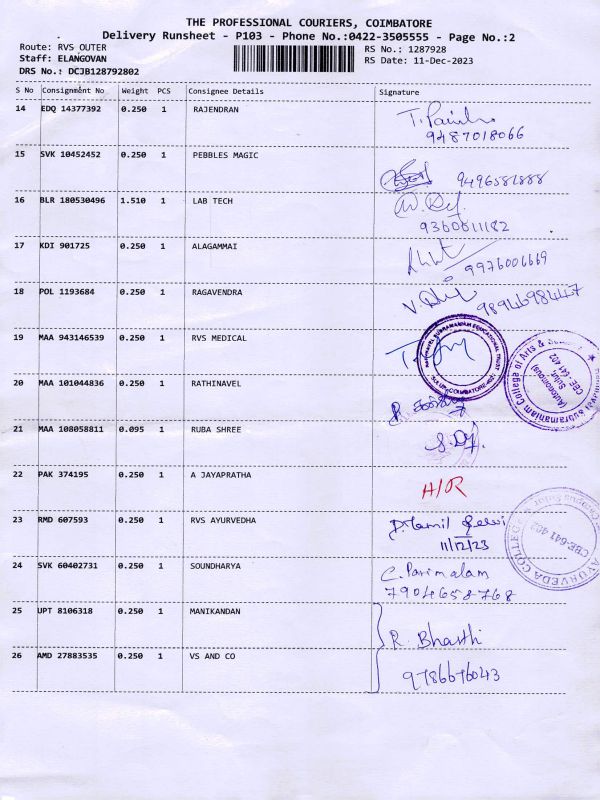 THE PROFESSIONAL COURIERS, COIMBATORE
Delivery Runsheet - P103 - Phone No.:0422-3505555 - Page No.:2
Route: RVS OUTER RS No.: 1287928
Staff: ELANGOVAN RS Date: 11-Dec-2023
DRS No.: DCJB128792802
S No Consignment No Weight PCS Consignee Details Signature
14 EDQ 14377392 0.250 1 RAJENDRAN
9487018066
15 SVK 10452452 0.250 1 PEBBLES MAGIC
9496581888
16 BLR 180530496 1.510 1 LAB TECH
9360611182
17 KDI 901725 0.250 1 ALAGAMMAI
9976006669
18 POL 1193684 0.250 1 RAGAVENDRA
19 MAA 943146539 0.250 1 RVS MEDICAL
20 MAA 101044836 0.250 1 RATHINAVEL
21 MAA 108058811 0.095 1 RUBA SHREE
22 PAK 374195 0.250 1 A JAYAPRATHA H/R
23 RMD 607593 0.250 1 RVS AYURVEDHA D. Tamil Selvi
11/12/23
24 SVK 60402731 0.250 1 SOUNDHARYA C. Parimalam
7904658768
25 UPT 8106318 0.250 1 MANIKANDAN
R. Bharthi
26 AMD 27883535 0.250 1 VS AND CO
9786676043
Subramaniam College of Arts &
(Autonomous)
Sulur,
CBE-641 402
AYURVEDA COLLEGE
CBE-641 402